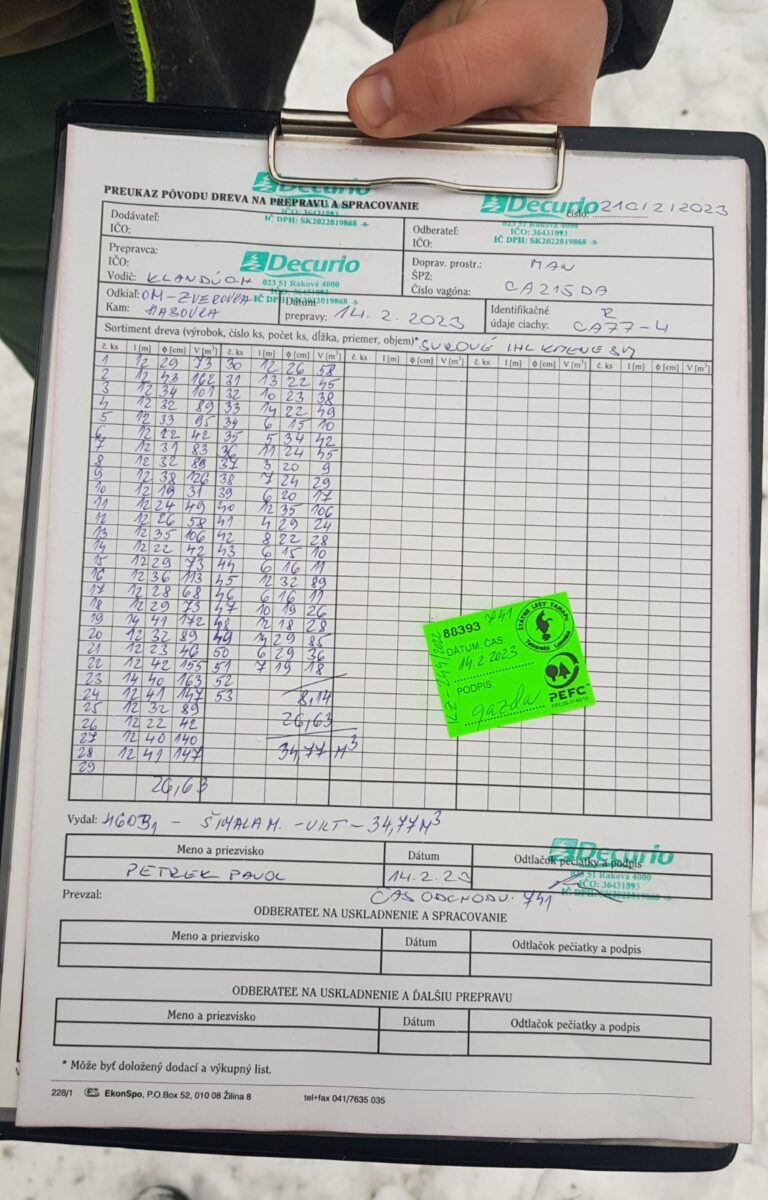 Decurio
Decurio
PREUKAZ PÔVODU DREVA NA PREPRAVU A SPRACOVANIE
číslo: 210/2/2023
IČO: 36431893
IČ DPH: SK2022019868 -8-
023 51 Raková 4000
IČO: 36431893
IČ DPH: SK2022019868 -8-
Dodávateľ:
IČO:
Odberateľ:
IČO:
Prepravca:
IČO:
Vodič: KLANDÚCH
Decurio
023 51 Raková 4000
IČO: 36431893
IČ DPH: SK2022019868 -8-
Doprav. prostr.: MAN
ŠPZ:
Číslo vagóna: CA215DA
Odkiaľ: OM-ZVEROVKA
Kam: HABOVKA
Dátum
prepravy: 14. 2. 2023
Identifikačné R
údaje ciachy: CA77-4
Sortiment dreva (výrobok, číslo ks, počet ks, dĺžka, priemer, objem)* SUROVÉ IHL KMENE SM
č. ks l [m] ϕ [cm] V [m³] č. ks l [m] ϕ [cm] V [m³] č. ks l [m] ϕ [cm] V [m³] č. ks l [m] ϕ [cm] V [m³] č. ks l [m] ϕ [cm] V [m³]
1 12 29 73 30 12 26 58
2 11 43 162 31 13 22 45
3 12 34 101 32 10 23 38
4 12 32 89 33 14 22 49
5 12 33 95 34 6 15 10
6 12 22 42 35 5 34 42
7 12 31 83 36 11 24 45
8 12 32 89 37 3 20 9
9 12 38 126 38 7 24 29
10 12 19 31 39 6 20 17
11 12 24 49 40 12 35 106
12 12 26 58 41 4 29 24
13 12 35 106 42 8 22 28
14 12 22 42 43 6 15 10
15 12 29 73 44 6 16 11
16 12 36 113 45 12 32 89
17 12 28 68 46 6 16 11
18 12 29 73 47 10 19 26
19 14 41 172 48 12 18 28
20 12 32 89 49 14 29 85
21 12 23 46 50 6 29 36
22 12 42 155 51 7 19 18
23 14 40 163 52
24 12 41 147 53 8,14
25 12 32 89
26 12 22 42 26,63
27 12 40 140
28 12 41 147 34,77 M³
29
26,63
88393 741
DÁTUM, ČAS
14.2.2023
PODPIS
gazda
ŠTÁTNE LESY TANAPu
Tatranská Lomnica
PEFC
Vydal: 46091 - ŠIMALA M. - UKT - 34,77 M³
Meno a priezvisko Dátum Odtlačok pečiatky a podpis
PETREK PAVOL 14.2.23
Decurio
023 51 Raková 4000
IČO: 36431893
IČ DPH: SK2022019868 -8-
Prevzal: ČAS ODCHODU: 741
ODBERATEĽ NA USKLADNENIE A SPRACOVANIE
Meno a priezvisko Dátum Odtlačok pečiatky a podpis
ODBERATEĽ NA USKLADNENIE A ĎALŠIU PREPRAVU
Meno a priezvisko Dátum Odtlačok pečiatky a podpis
* Môže byť doložený dodací a výkupný list.
228/1 EkonSpo, P.O.Box 52, 010 08 Žilina 8 tel+fax 041/7635 035